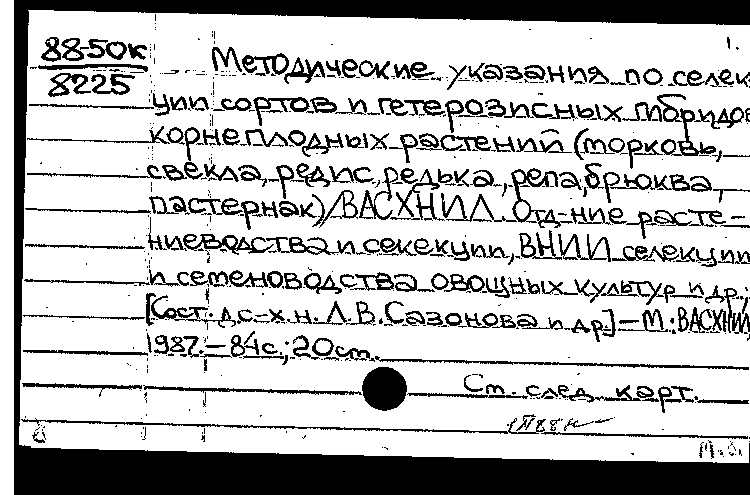 1.
88-50к
8225
Методические указания по селек
ции сортов и гетерозисных гибридов
корнеплодных растений (морковь,
свекла, редис, редька, репа, брюква,
пастернак)/ВАСХНИЛ. Отд-ние расте-
ниеводства и секекции, ВНИИ селекции
и семеноводства овощных культур и др.;
[Сост. д.с-х.н. Л.В. Сазонова и др.] – М.: ВАСХНИЛ,
1987. – 84с.; 20см.
См. след. карт.